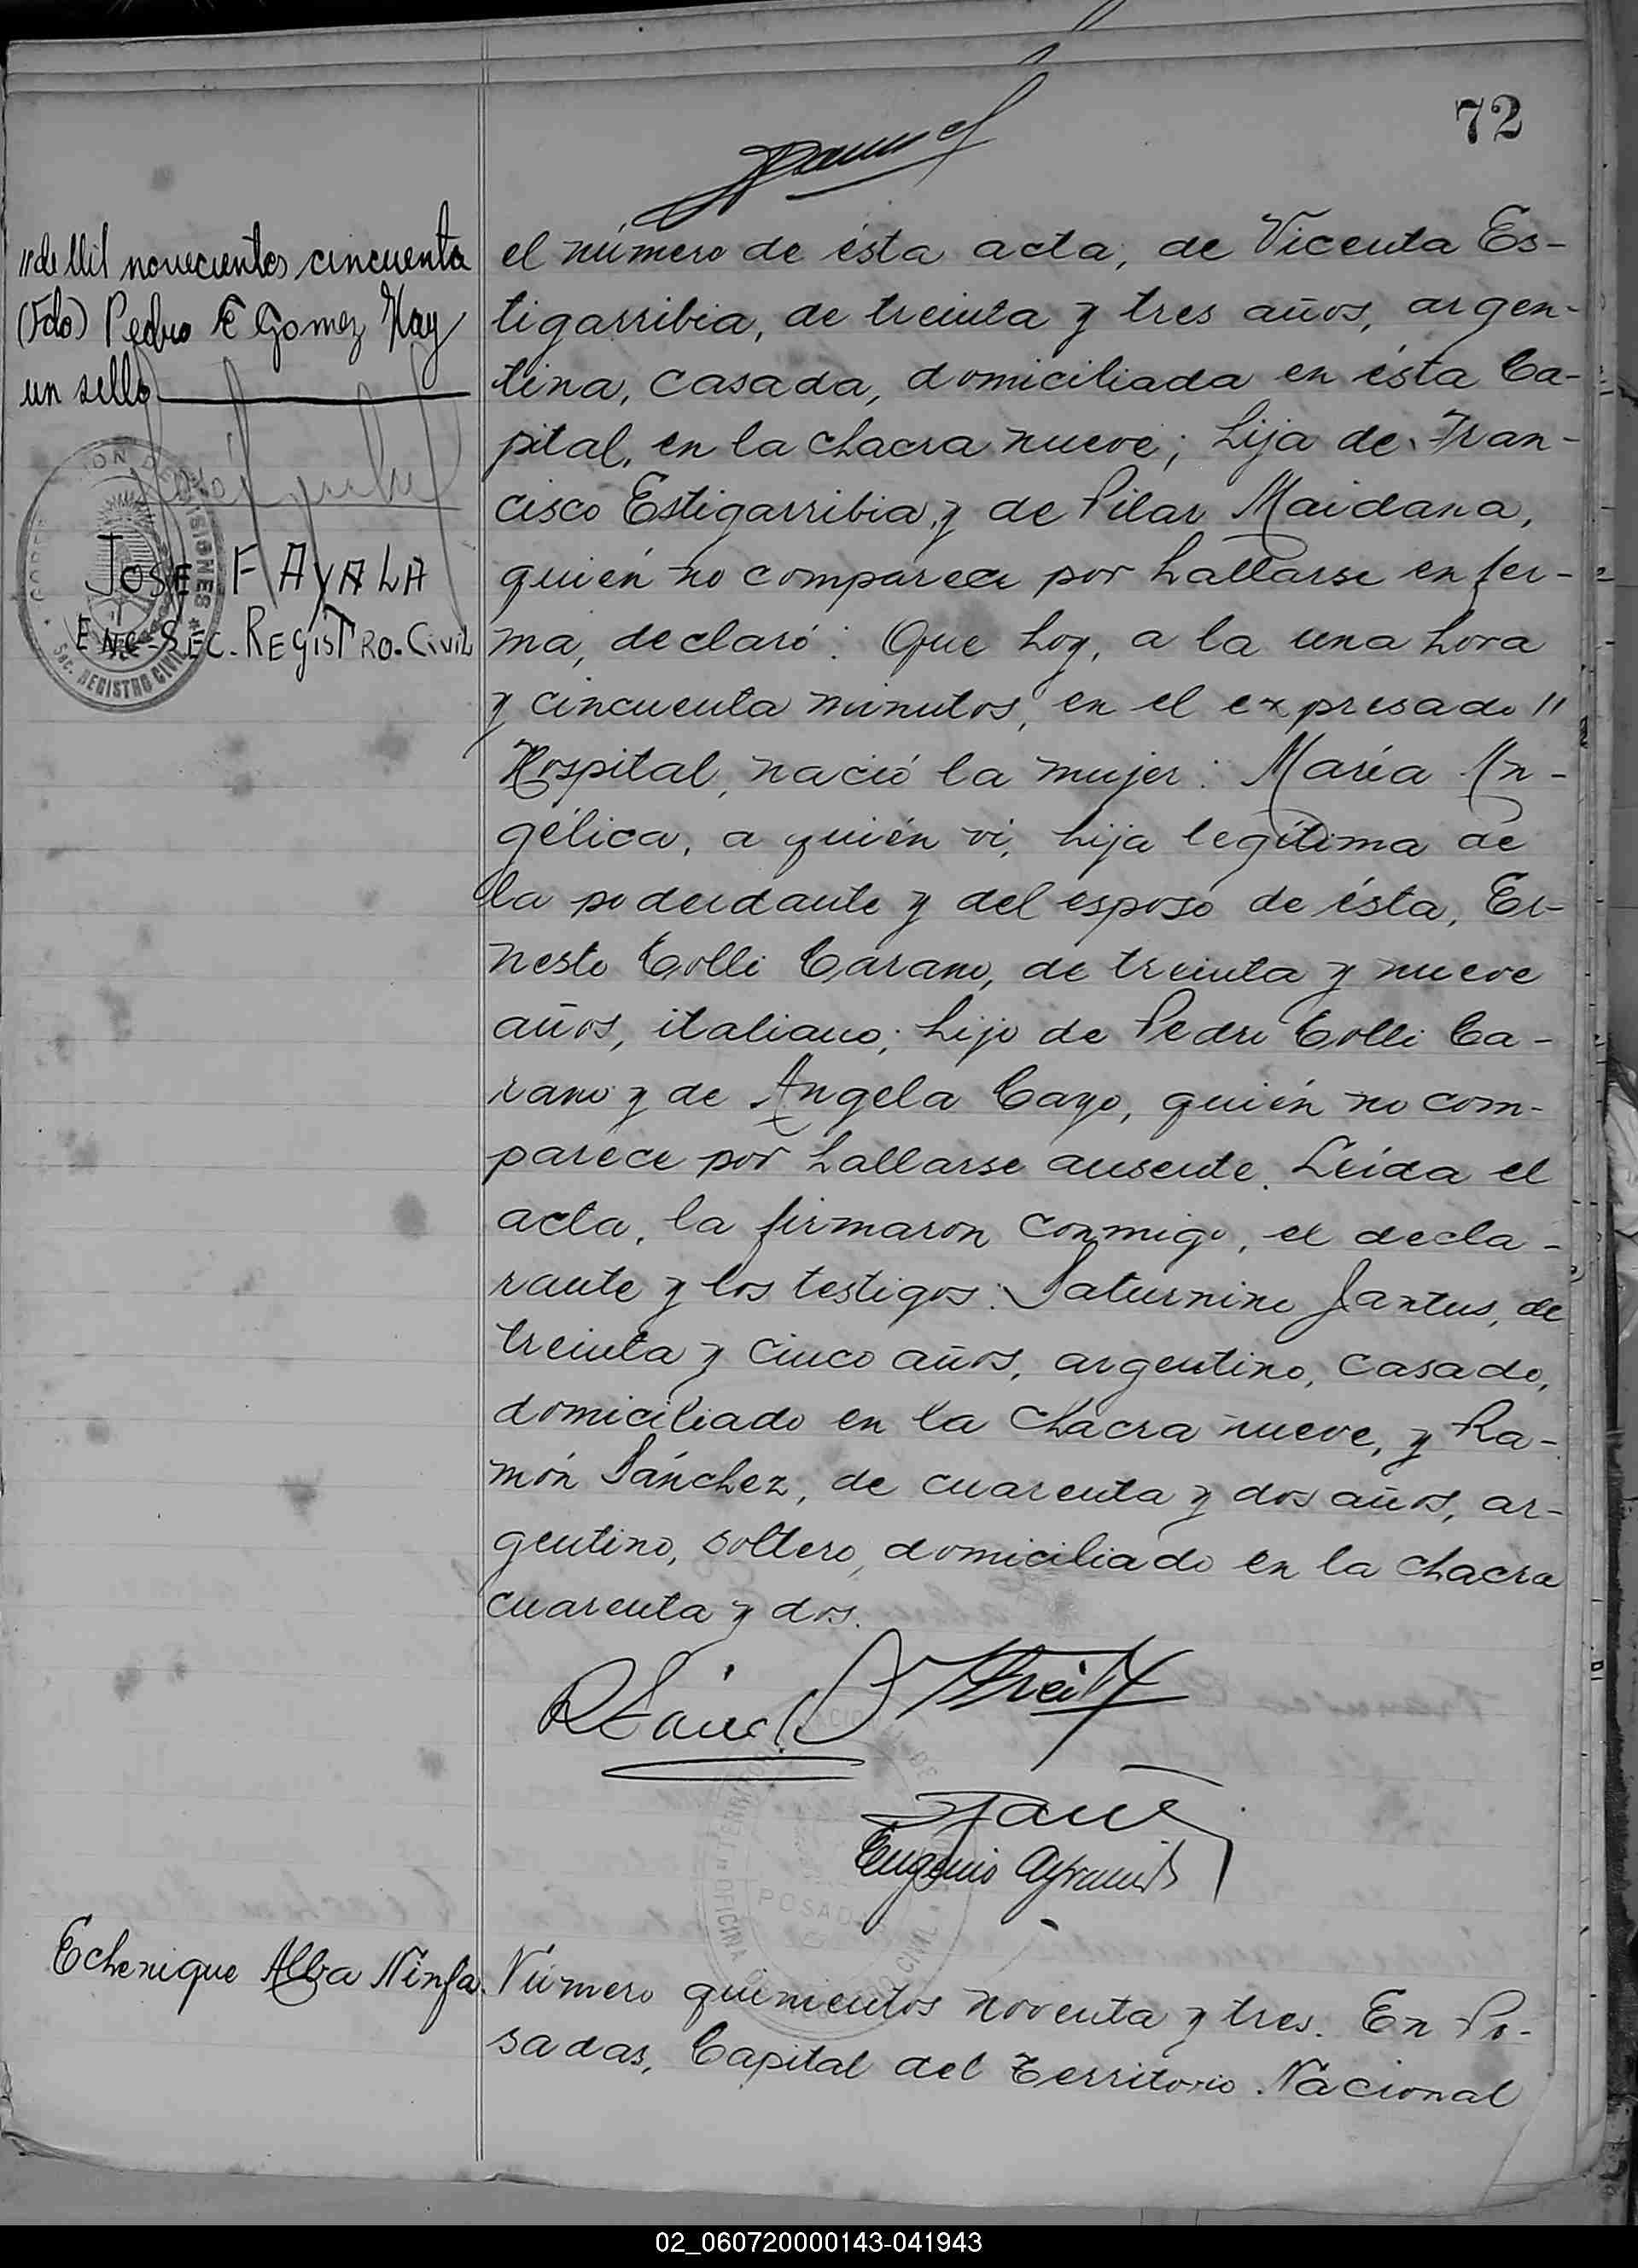 72
"de Mil novecientos cincuenta
(Fdo) Pedro E Gomez Hay
un sello
JOSE F AYALA
ENC. SEC. REGISTRO. CIVIL
SEC. REGISTRO CIVIL
el número de ésta acta, de Vicenta Es-
tigarribia, de treinta y tres años, argen-
tina, casada, domiciliada en ésta Ca-
pital, en la chacra nueve; hija de Fran-
cisco Estigarribia y de Pilar Maidana,
quién no comparece por hallarse enfer-
ma, declaró: Que hoy, a la una hora
y cincuenta minutos, en el expresado "
Hospital, nació la mujer: María An-
gélica, a quién vi, hija legítima de
la poderdante y del esposo de ésta, Er-
nesto Colli Carano, de treinta y nueve
años, italiano; hijo de Pedro Colli Ca-
rano y de Angela Cayo, quién no com-
parece por hallarse ausente. Leída el
acta, la firmaron conmigo, el decla-
rante y los testigos: Saturnino Jantus, de
treinta y cinco años, argentino, casado,
domiciliado en la chacra nueve, y Ra-
món Sánchez, de cuarenta y dos años, ar-
gentino, soltero, domiciliado en la chacra
cuarenta y dos.
Eugenio
POSADAS
Echenique Alba Ninfa.
Número quinientos noventa y tres. En Po-
sadas, Capital del Territorio Nacional
02_060720000143-041943